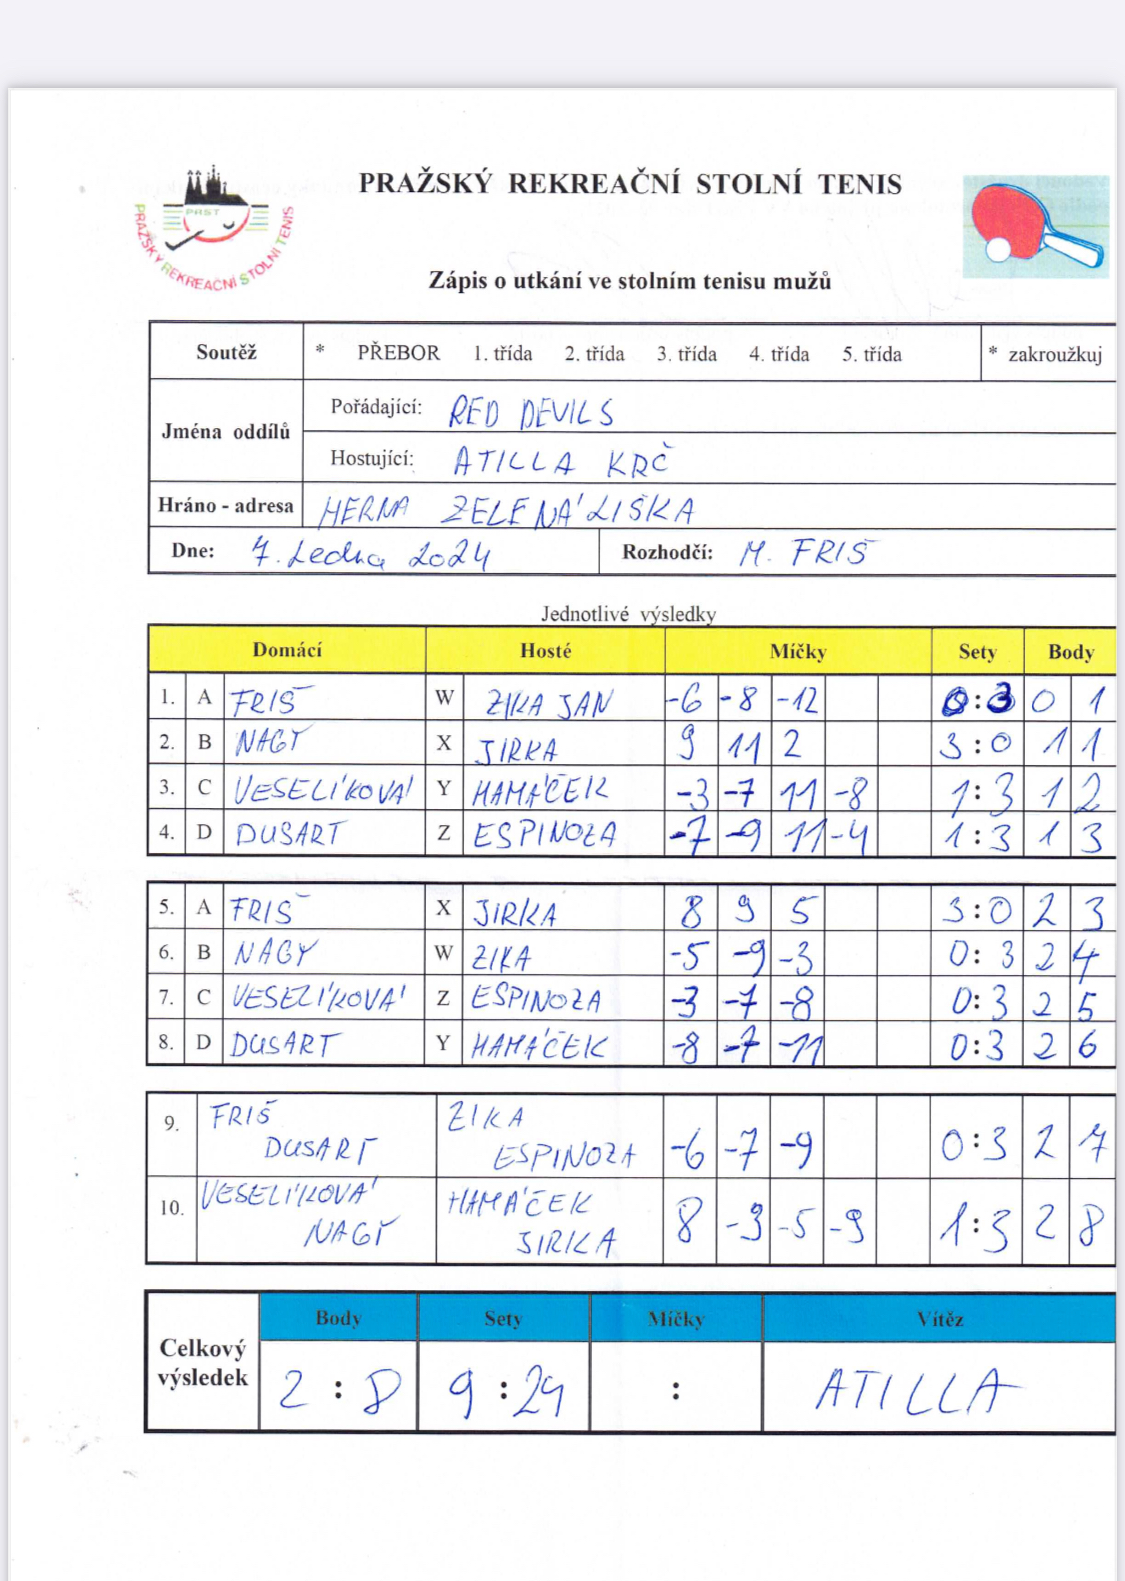 PRAŽSKÝ REKREAČNÍ STOLNÍ TENIS
PRST
PRAŽSKÝ REKREAČNÍ STOLNÍ TENIS
Zápis o utkání ve stolním tenisu mužů
Soutěž * PŘEBOR 1. třída 2. třída 3. třída 4. třída 5. třída * zakroužkuj
Jména oddílů
Pořádající: RED DEVILS
Hostující: ATILLA KRČ
Hráno - adresa HERNA ZELENÁ LIŠKA
Dne: 7. Ledna 2024 Rozhodčí: M. FRIŠ
Jednotlivé výsledky
Domácí Hosté Míčky Sety Body
1. A FRIŠ W ZIKA JAN -6 -8 -12 0:3 0 1
2. B NAGY X JIRKA 9 11 2 3:0 1 1
3. C VESELÍKOVÁ Y HAMÁČEK -3 -7 11 -8 1:3 1 2
4. D DUSART Z ESPINOZA -7 -9 11 -4 1:3 1 3
5. A FRIŠ X JIRKA 8 9 5 3:0 2 3
6. B NAGY W ZIKA -5 -9 -3 0:3 2 4
7. C VESELÍKOVÁ Z ESPINOZA -3 -7 -8 0:3 2 5
8. D DUSART Y HAMÁČEK -8 -7 -11 0:3 2 6
9. FRIŠ DUSART ZIKA ESPINOZA -6 -7 -9 0:3 2 7
10. VESELÍKOVÁ NAGY HAMÁČEK JIRKA 8 -3 -5 -9 1:3 2 8
Body Sety Míčky Vítěz
Celkový výsledek 2:8 9:24 : ATILLA